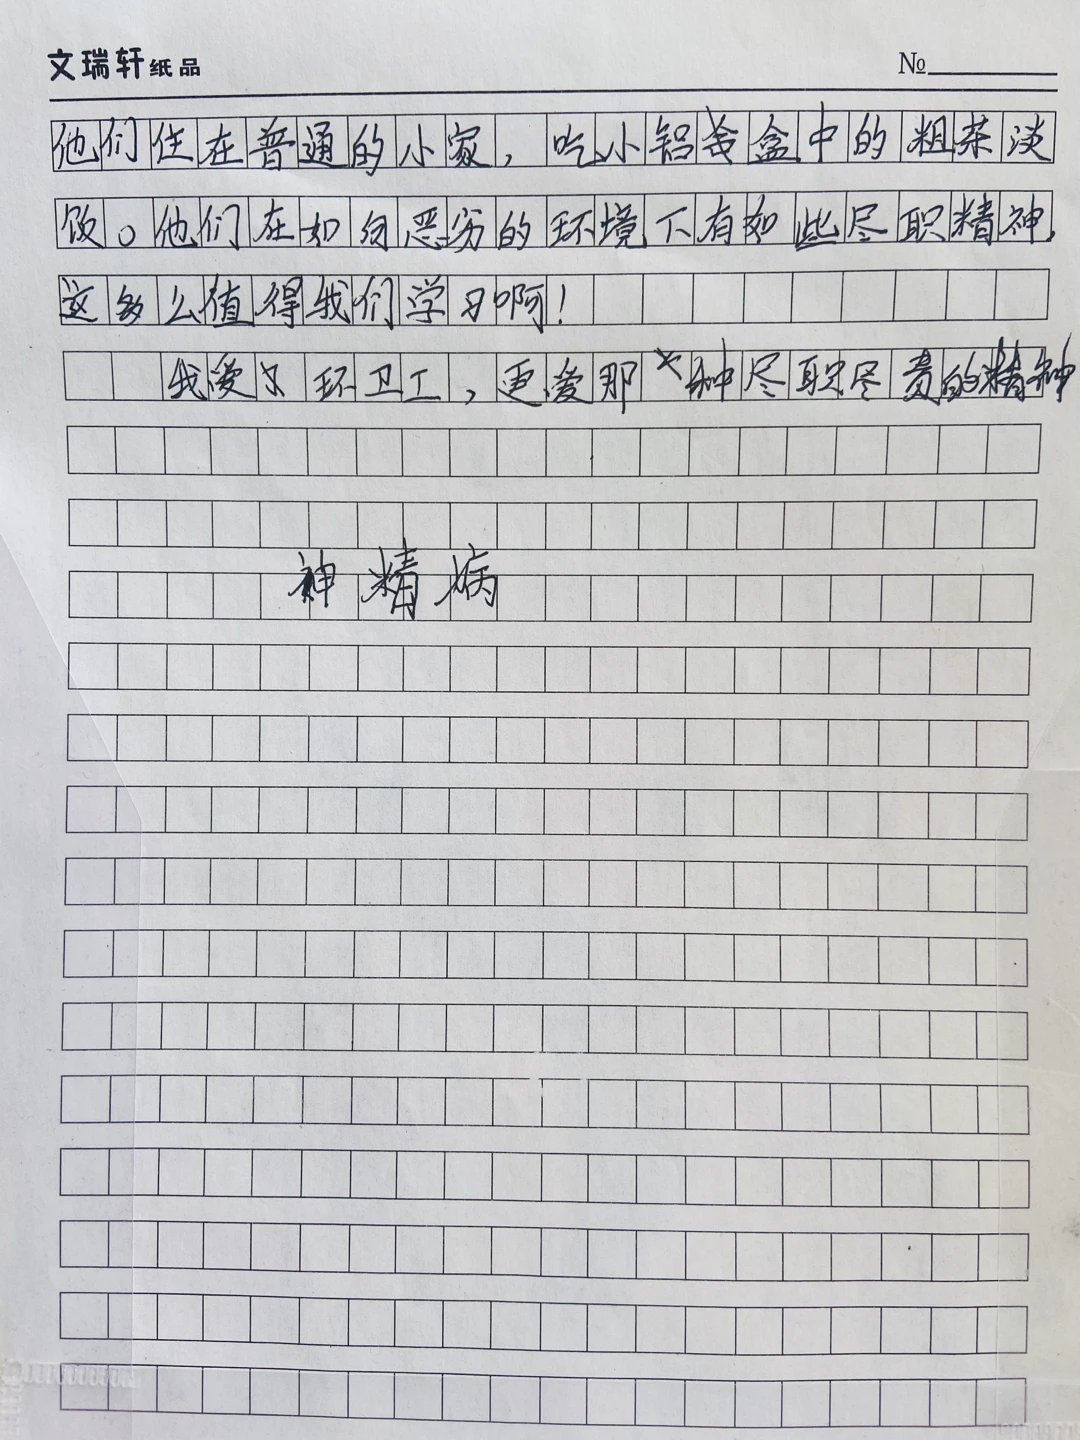 文瑞轩纸品 №
他们住在普通的小家，吃小铝盒中的粗茶淡
饭。他们在如何恶劣的环境下有如此尽职精神,
这多么值得我们学习啊！
我爱环卫工，更爱那种尽职尽责的精神
神精病